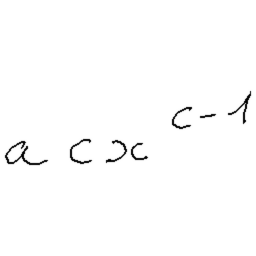 a c x^{c-1}